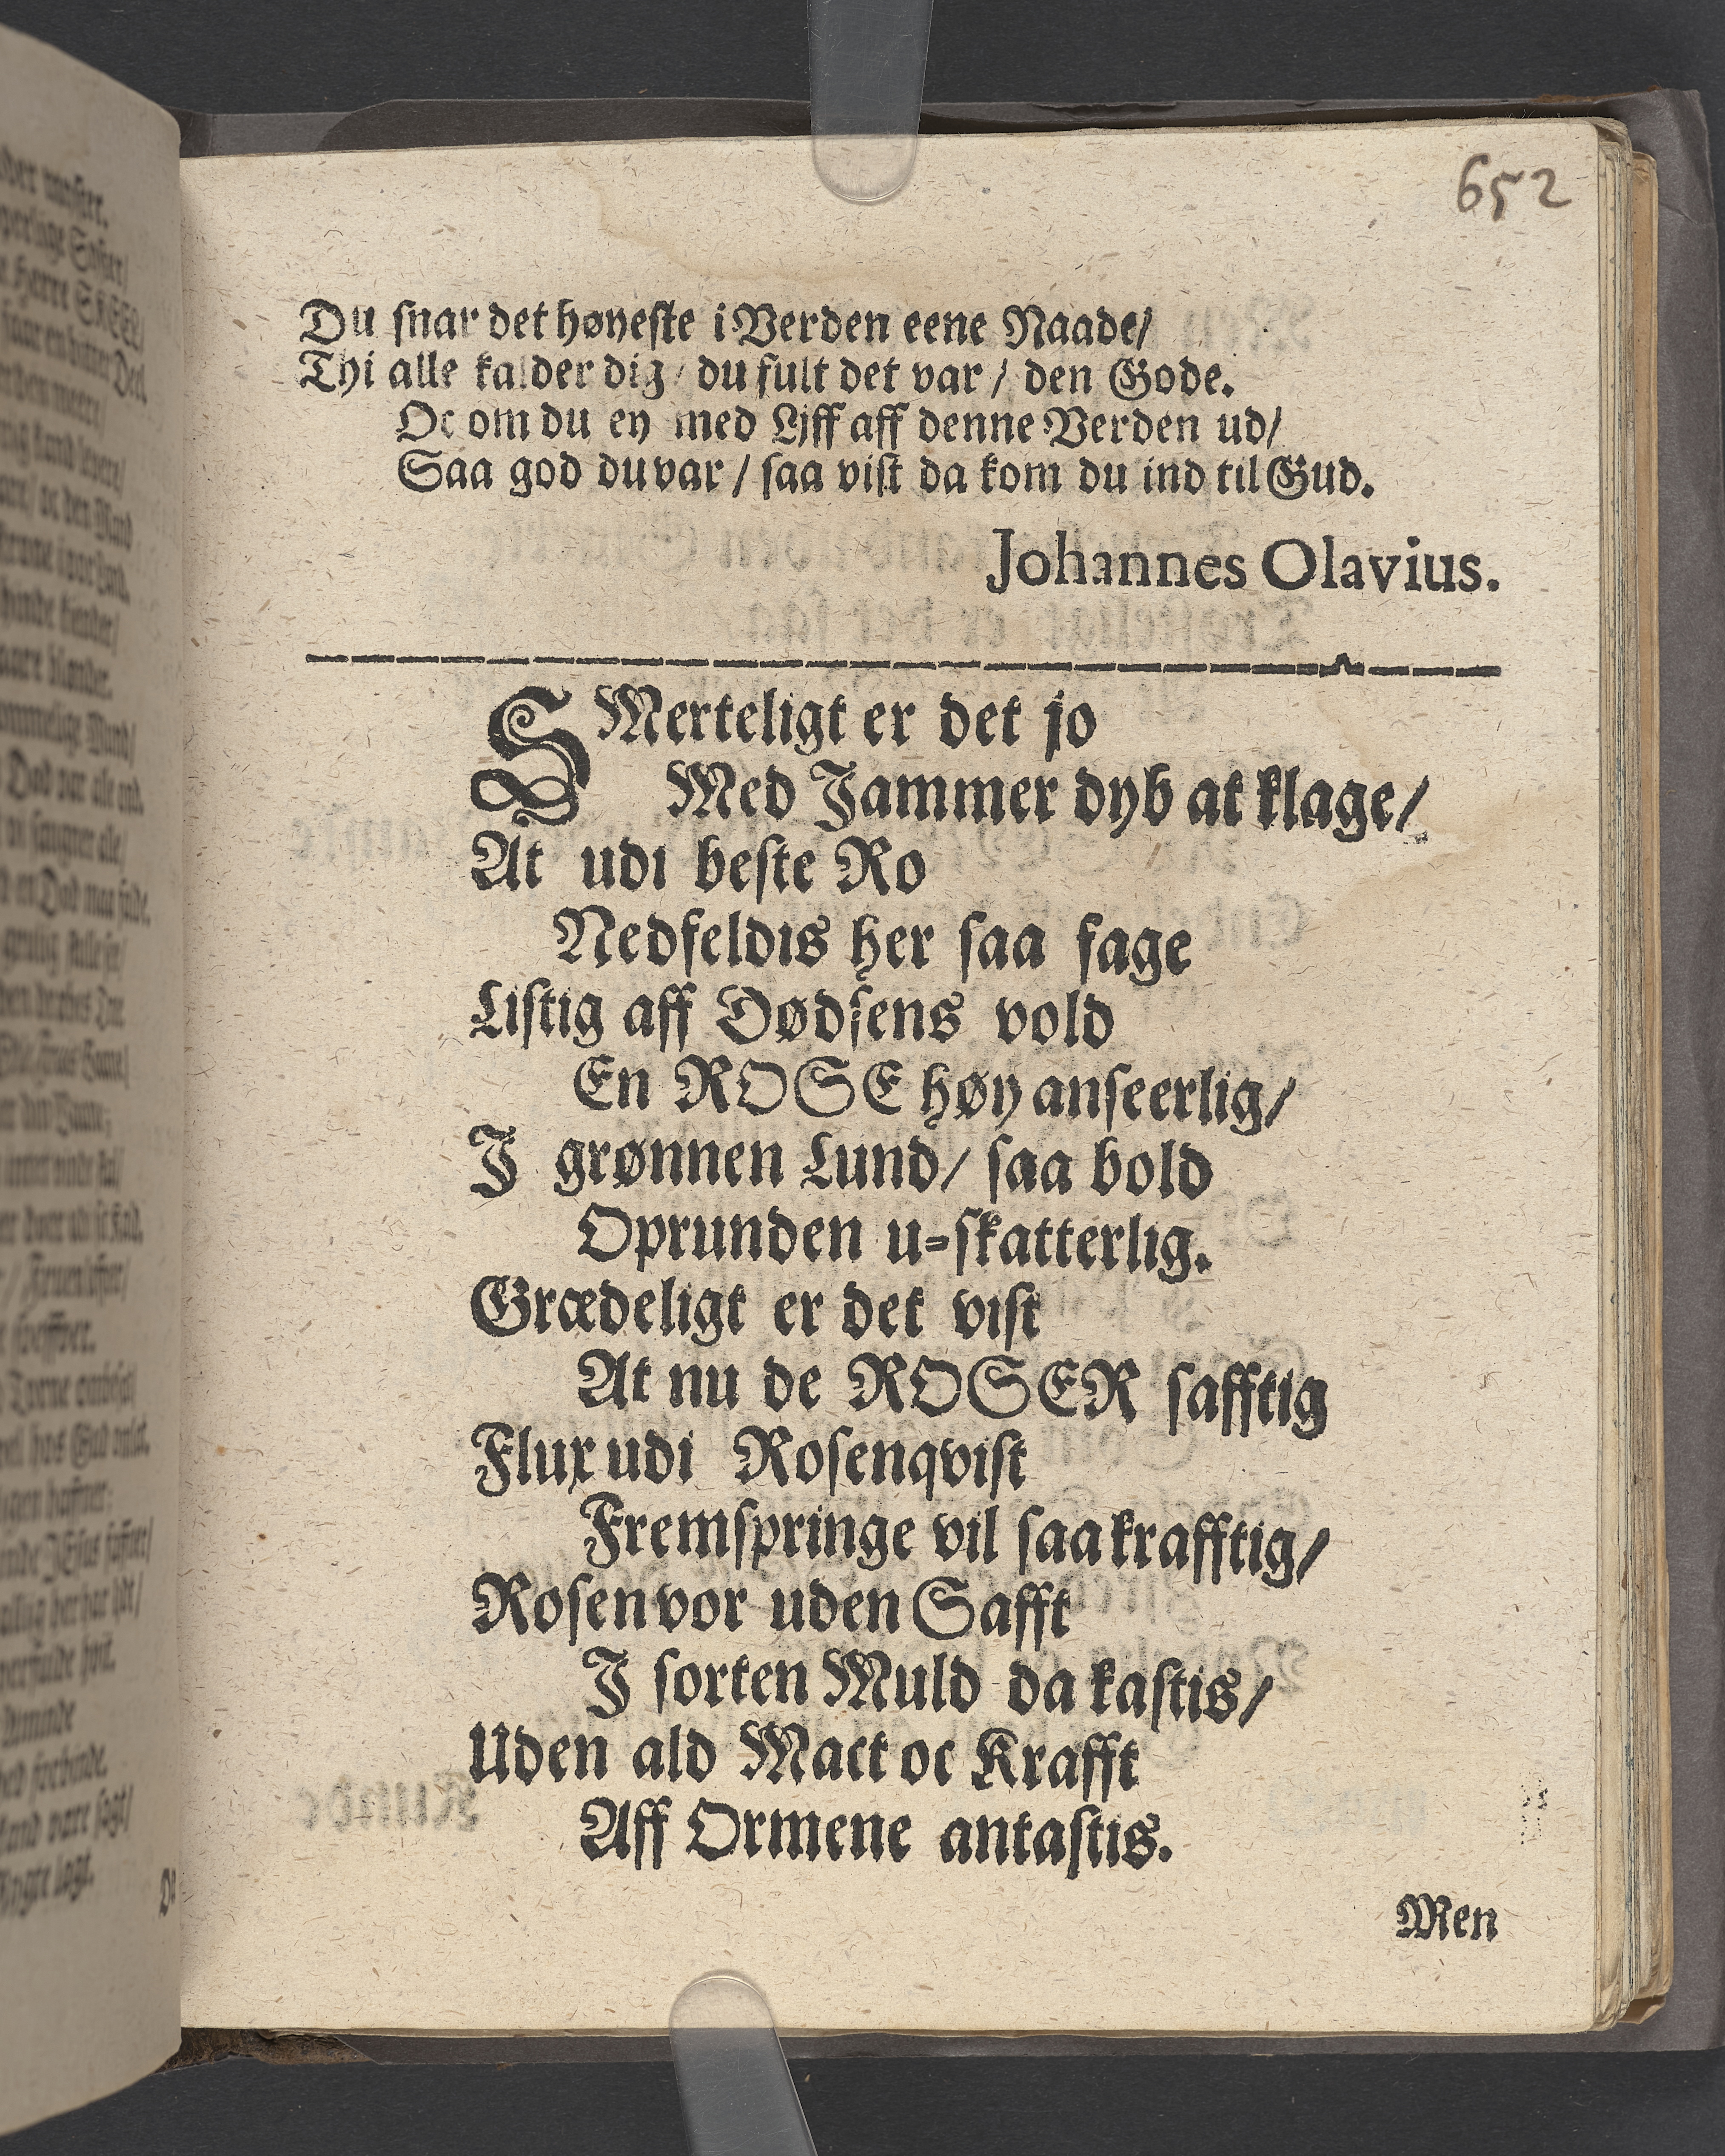 652
Du snar det høyeste i Verden eene Naade/
Thi alle kalder dig / du fult det var / den Gode.
Oc om du ey med Lijff aff denne Verden ud/
Saa god du var / saa vist da kom du ind til Gud.
Johannes Olavius.
SMerteligt er det jo
Med Jammer dyb at klage/
At udi beste Ro
Nedfeldis her saa fage
Listig aff Dødsens vold
En ROSE høy anseerlig/
I grønnen Lund/ saa bold
Oprunden u-skatterlig.
Grædeligt er det vist
At nu de ROSER safftig
Flux udi Rosenqvist
Fremspringe vil saa krafftig/
Rosen vor uden Safft
I sorten Muld da kastis/
Uden ald Mact oc Krafft
Aff Ormene antastis.
Men